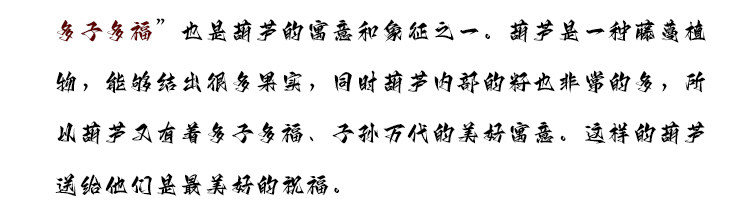 多子多福”也是葫芦的寓意和象征之一。葫芦是一种藤蔓植
物，能够结出很多果实，同时葫芦内部的籽也非常的多，所
以葫芦又有着多子多福、子孙万代的美好寓意。这样的葫芦
送给他们是最美好的祝福。